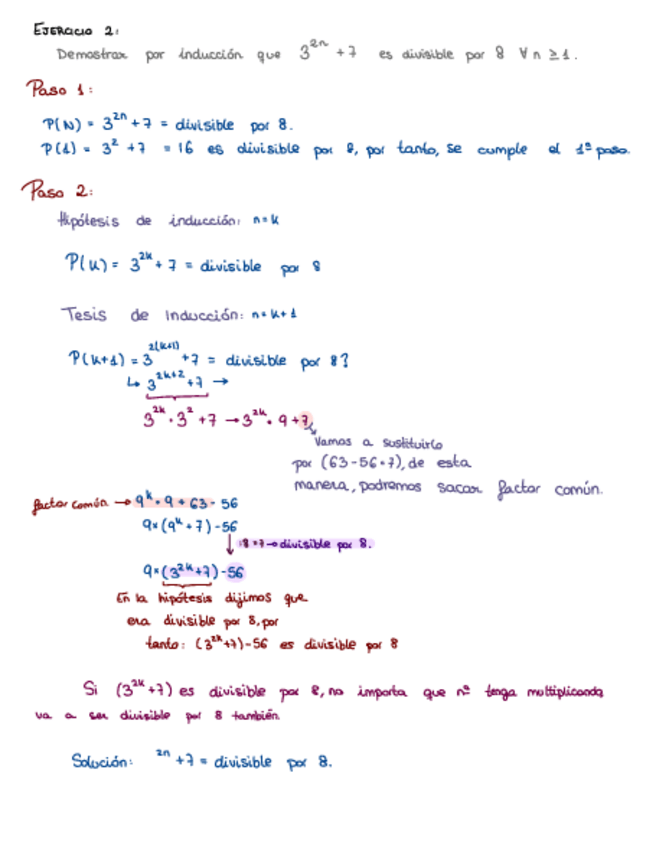 EJERCICIO 2:
Demostrar por inducción que 3^2n + 7 es divisible por 8 ∀ n ≥ 1.
Paso 1:
P(N) = 3^2n + 7 = divisible por 8.
P(1) = 3^2 + 7 = 16 es divisible por 8, por tanto, se cumple el 1º paso.
Paso 2:
Hipótesis de inducción: n = k
P(k) = 3^2k + 7 = divisible por 8
Tesis de inducción: n = k+1
P(k+1) = 3^2(k+1) + 7 = divisible por 8?
↳ 3^2k+2 + 7 →
3^2k · 3^2 + 7 → 3^2k · 9 + 7
Vamos a sustituirlo
por (63 - 56 = 7), de esta
manera, podremos sacar factor común.
factor común → 9^k · 9 + 63 - 56
9 × (9^k + 7) - 56
↓ :8 = 7 → divisible por 8.
9 × (3^2k + 7) - 56
En la hipótesis dijimos que
era divisible por 8, por
tanto: (3^2k + 7) - 56 es divisible por 8
Si (3^2k + 7) es divisible por 8, no importa que nº tenga multiplicando
va a ser divisible por 8 también.
Solución: ^2n + 7 = divisible por 8.